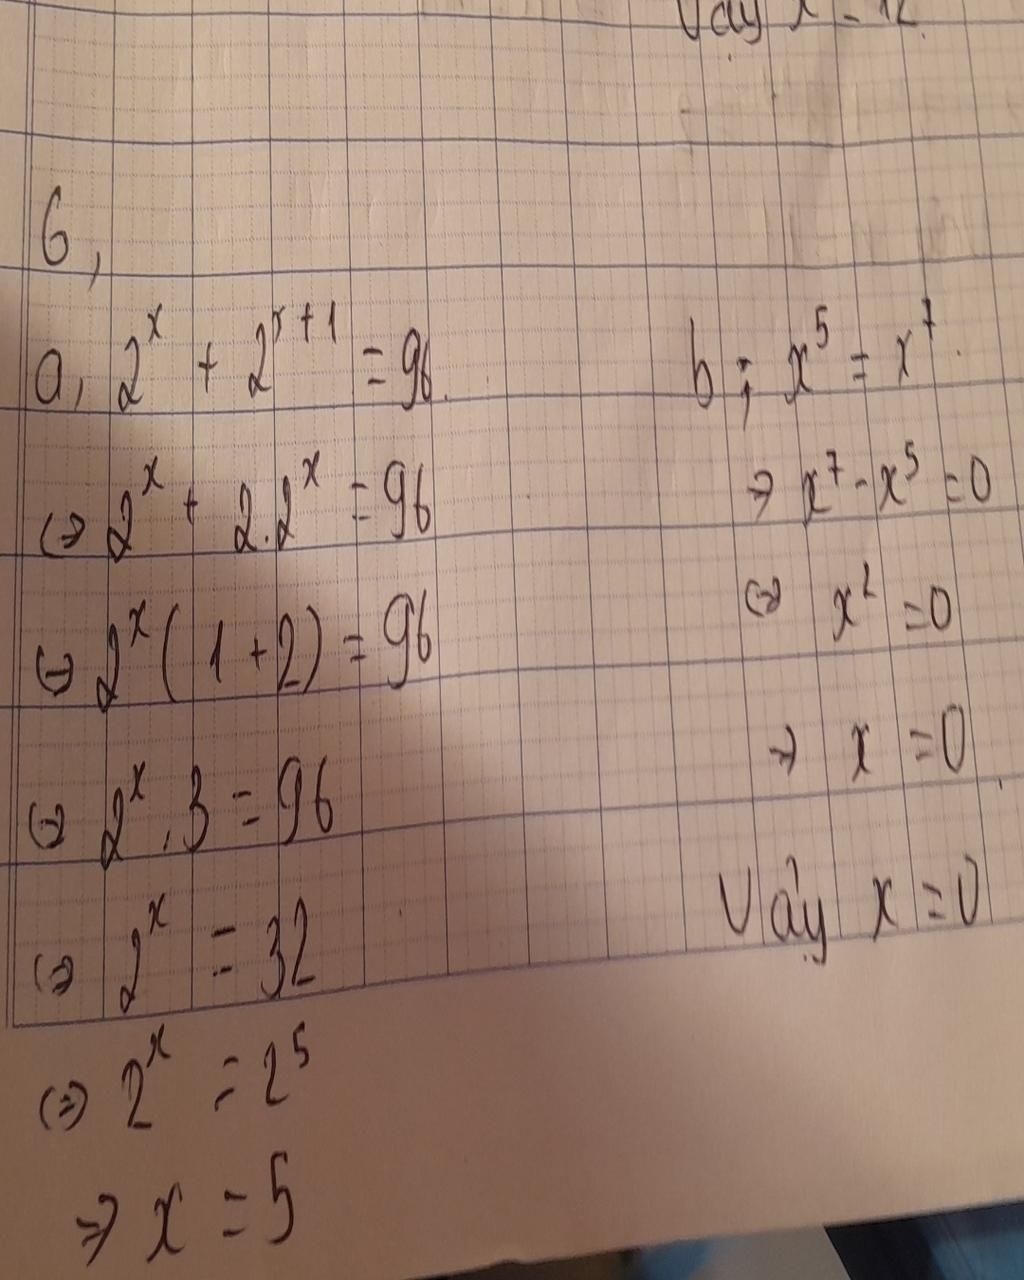 Vậy x = 12
6,
a, 2^x + 2^{x+1} = 96.
⇔ 2^x + 2.2^x = 96
⇔ 2^x ( 1 + 2) = 96
⇔ 2^x . 3 = 96
⇔ 2^x = 32
⇔ 2^x = 2^5
⇒ x = 5
b ; x^5 = x^7.
⇒ x^7 - x^5 = 0
⇔ x^2 = 0
⇒ x = 0
Vậy x = 0